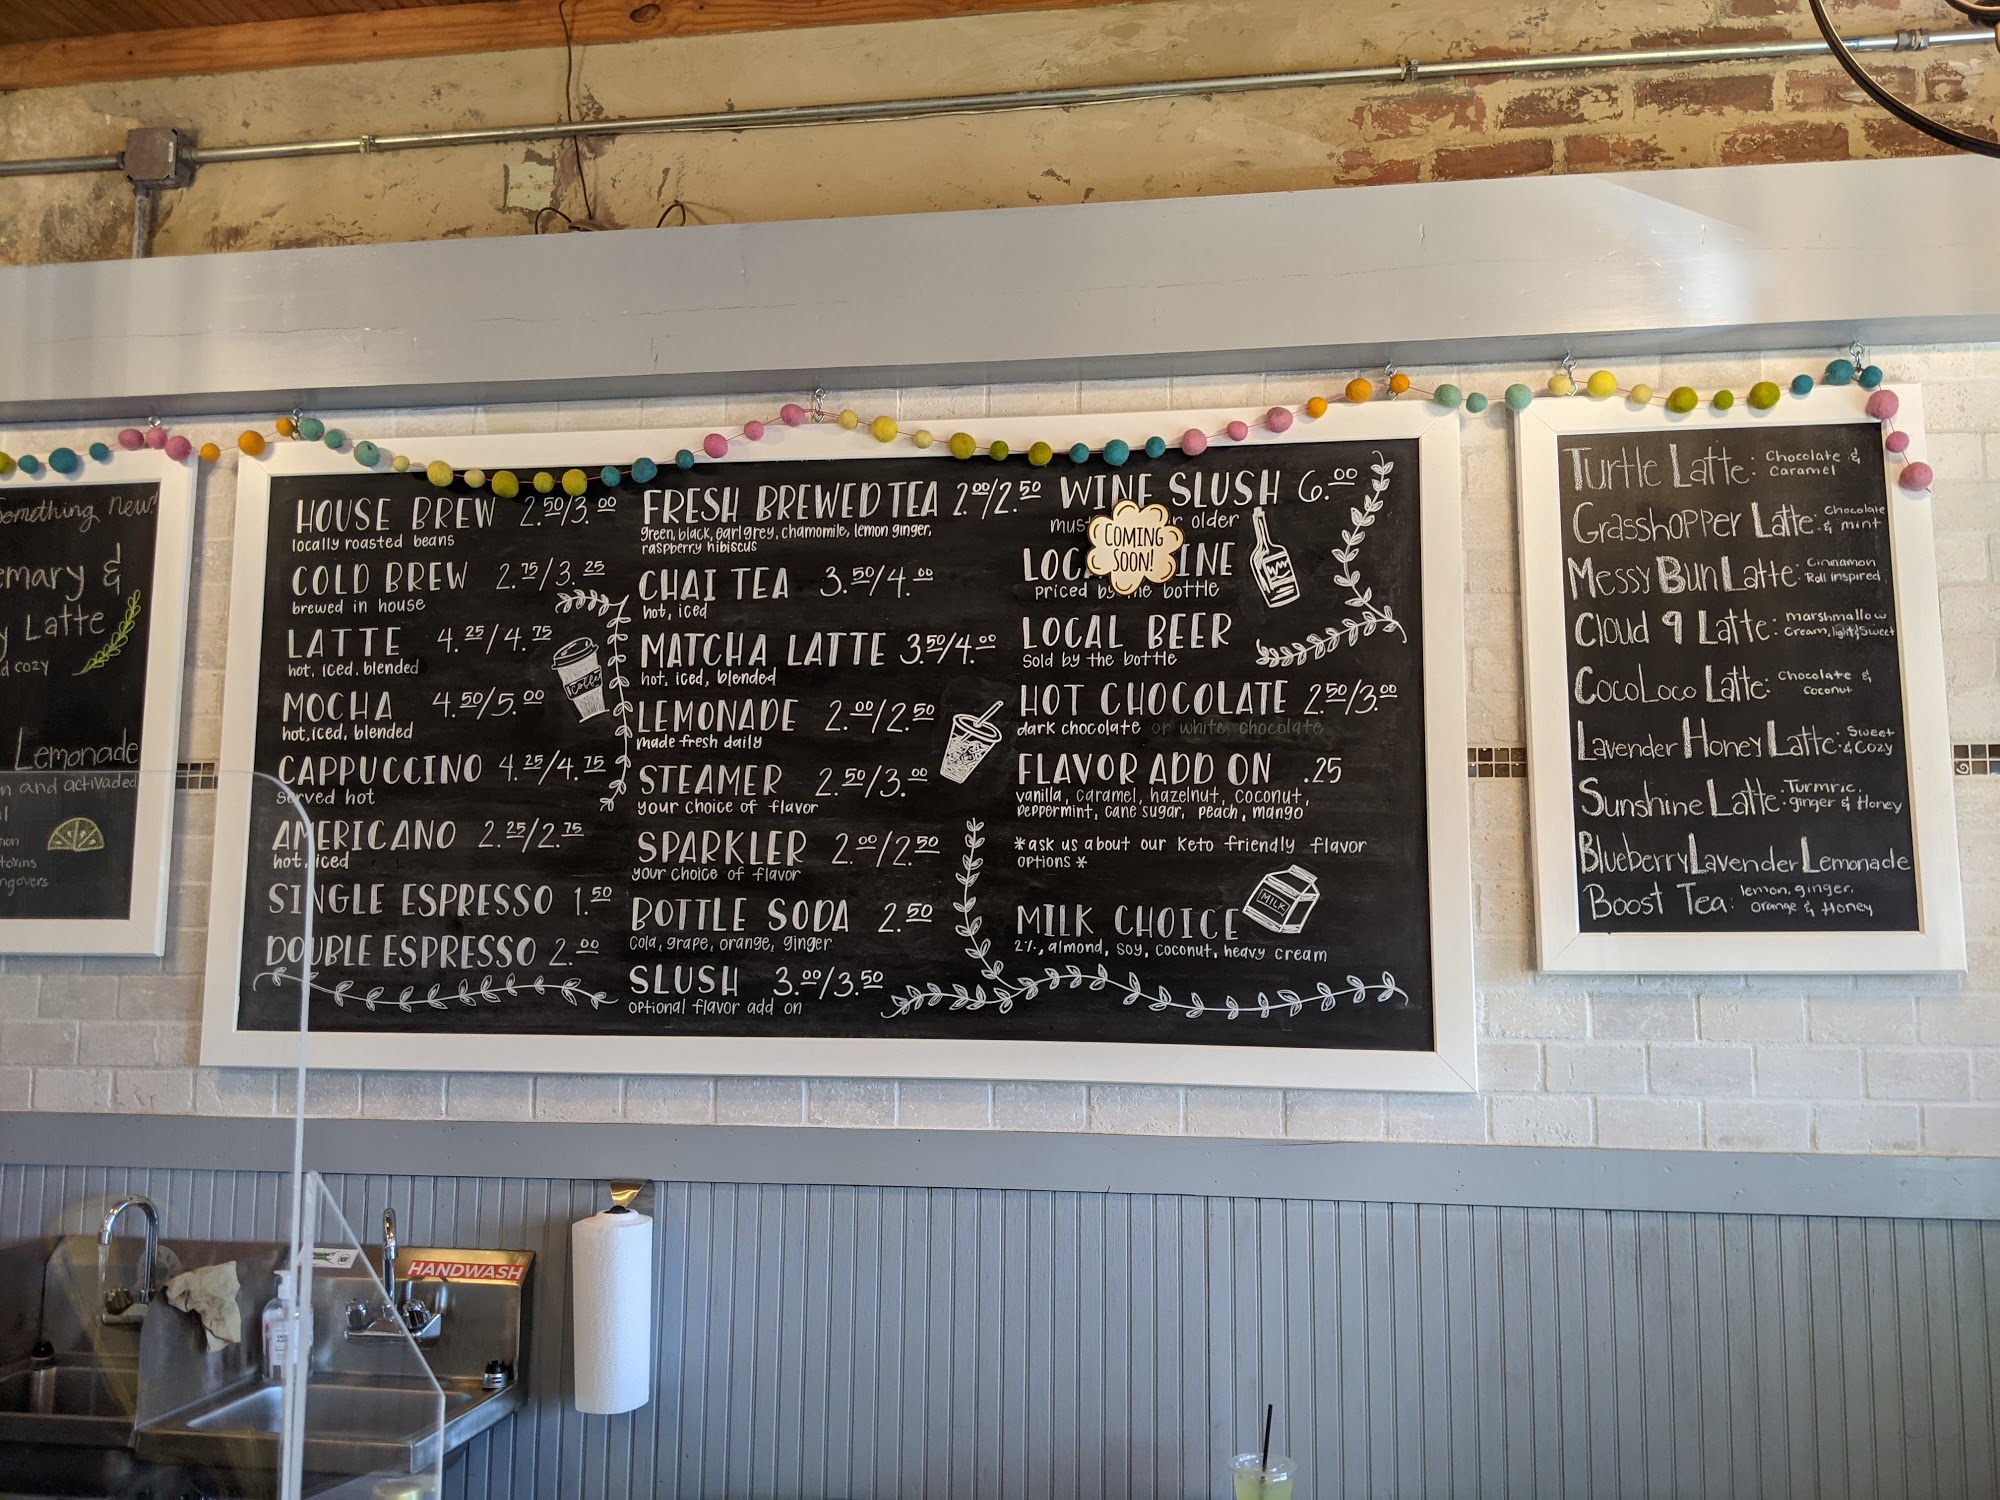 Something New!
emary &
y Latte
d cozy
Lemonade
n and activaded
HOUSE BREW 2.50/3.00
locally roasted beans
COLD BREW 2.75/3.25
brewed in house
LATTE 4.25/4.75
hot, iced, blended
MOCHA 4.50/5.00
hot, iced, blended
CAPPUCCINO 4.25/4.75
served hot
AMERICANO 2.25/2.75
hot, iced
SINGLE ESPRESSO 1.50
DOUBLE ESPRESSO 2.00
COFFEE
FRESH BREWED TEA 2.00/2.50
green, black, earl grey, chamomile, lemon ginger,
raspberry hibiscus
CHAI TEA 3.50/4.00
hot, iced
MATCHA LATTE 3.50/4.00
hot, iced, blended
LEMONADE 2.00/2.50
made fresh daily
STEAMER 2.50/3.00
your choice of flavor
SPARKLER 2.00/2.50
your choice of flavor
BOTTLE SODA 2.50
cola, grape, orange, ginger
SLUSH 3.00/3.50
optional flavor add on
WINE SLUSH 6.00
must r older
COMING
SOON!
LOCAL WINE
priced by the bottle
LOCAL BEER
Sold by the bottle
HOT CHOCOLATE 2.50/3.00
dark chocolate or white chocolate
FLAVOR ADD ON .25
vanilla, caramel, hazelnut, coconut,
peppermint, cane sugar, peach, mango
*ask us about our keto friendly flavor
options *
MILK
MILK CHOICE
2%, almond, soy, coconut, heavy cream
Turtle Latte: Chocolate &
Caramel
Grasshopper Latte: Chocolate
& mint
Messy Bun Latte: Cinnamon
Roll Inspired
Cloud 9 Latte: marshmallow
Cream, light & Sweet
CocoLoco Latte: Chocolate &
coconut
Lavender Honey Latte: Sweet
& Cozy
Sunshine Latte: Turmric,
ginger & Honey
Blueberry Lavender Lemonade
Boost Tea: lemon, ginger,
orange & Honey
HANDWASH